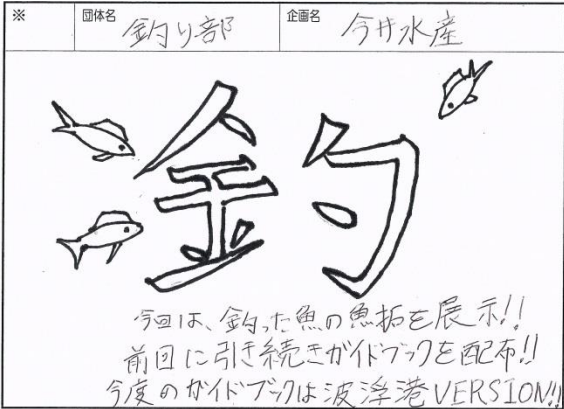 ※ 団体名 釣り部 企画名 今井水産
釣
今回は、釣った魚の魚拓を展示!!
前回に引き続きガイドブックを配布!!
今度のガイドブックは波浮港VERSION!!